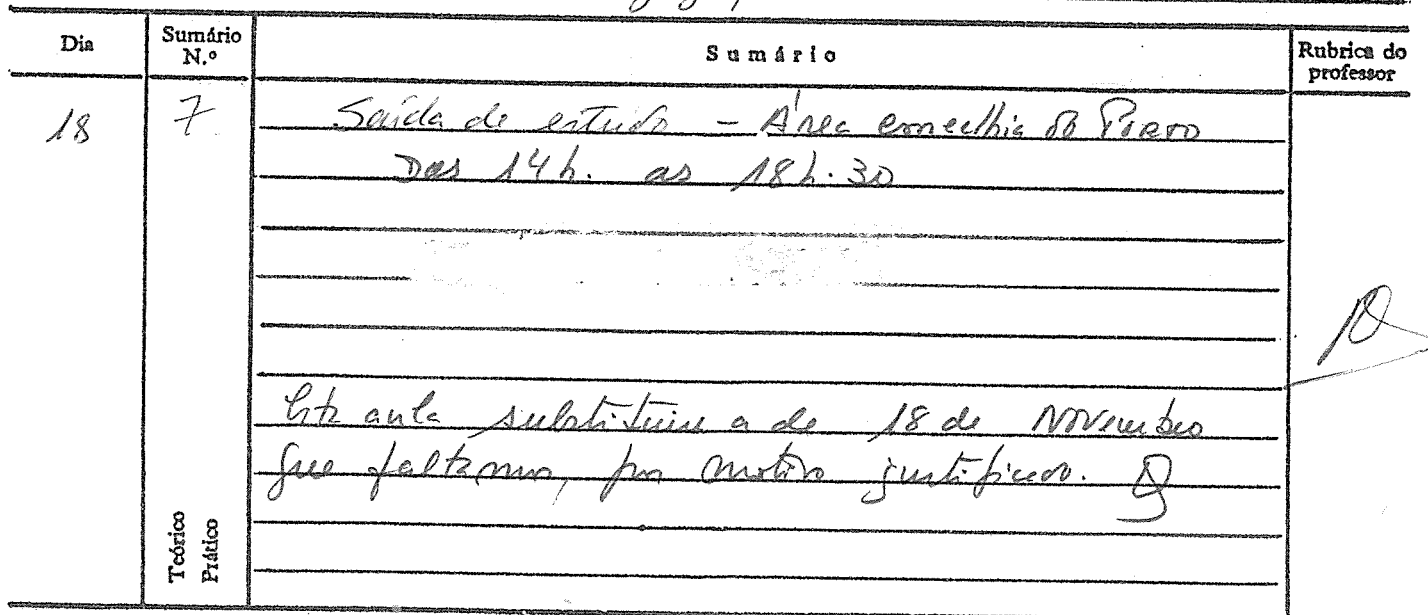 Dia
Sumário N.º
Sumário
Rubrica do professor
18
7
Saída de estudo - Área concelhia do Porto
Das 14h. as 18h.30
Esta aula substituiu a de 18 de Novembro
que faltamos, por motivo justificado.
Teórico
Prático